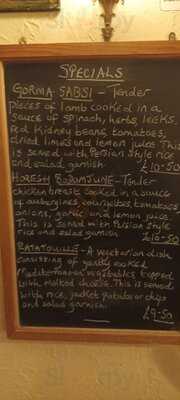 SPECIALS
GORMA SABSI - Tender
pieces of lamb cooked in a
sauce of spinach, herbs, leeks,
red Kidney beans, tomatoes,
dried limes and lemon juice This
is served with Persian style rice
and salad garnish. £10-50
HORESH BODOMJUNE - Tender
chicken breasts cooked in a sauce
of aubergines, courgettes, tomatoes,
onions, garlic and lemon juice.
This is served with Persian style
rice and salad garnish £10-50
RATATOUILLE - A vegetarian dish
consisting of gently cooked
Mediterranean vegetables topped
with melted cheese. This is served
with rice, jacket potato or chips
and salad garnish.
£9-50